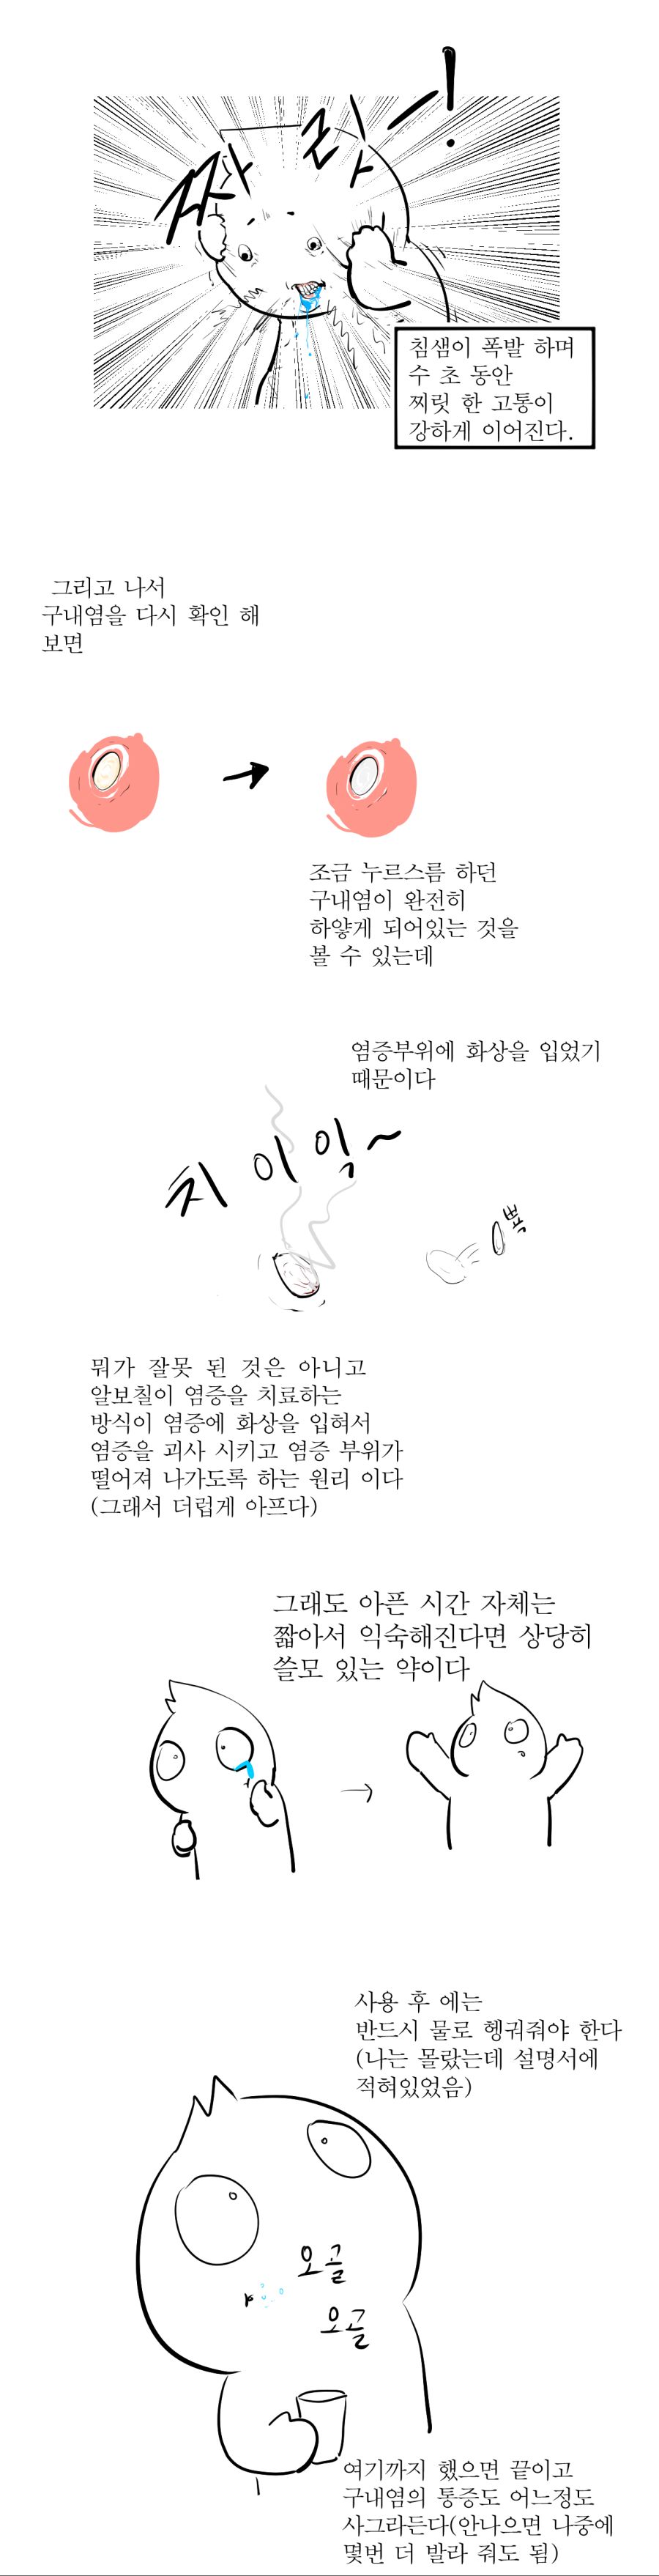 짜라ㅡ!
침샘이 폭발 하며
수 초 동안
찌릿 한 고통이
강하게 이어진다.
그리고 나서
구내염을 다시 확인 해
보면
조금 누르스름 하던
구내염이 완전히
하얗게 되어있는 것을
볼 수 있는데
염증부위에 화상을 입었기
때문이다
치이익~
뽁
뭐가 잘못 된 것은 아니고
알보칠이 염증을 치료하는
방식이 염증에 화상을 입혀서
염증을 괴사 시키고 염증 부위가
떨어져 나가도록 하는 원리 이다
(그래서 더럽게 아프다)
그래도 아픈 시간 자체는
짧아서 익숙해진다면 상당히
쓸모 있는 약이다
사용 후 에는
반드시 물로 헹궈줘야 한다
(나는 몰랐는데 설명서에
적혀있었음)
오골
오골
여기까지 했으면 끝이고
구내염의 통증도 어느정도
사그라든다(안나으면 나중에
몇번 더 발라 줘도 됨)